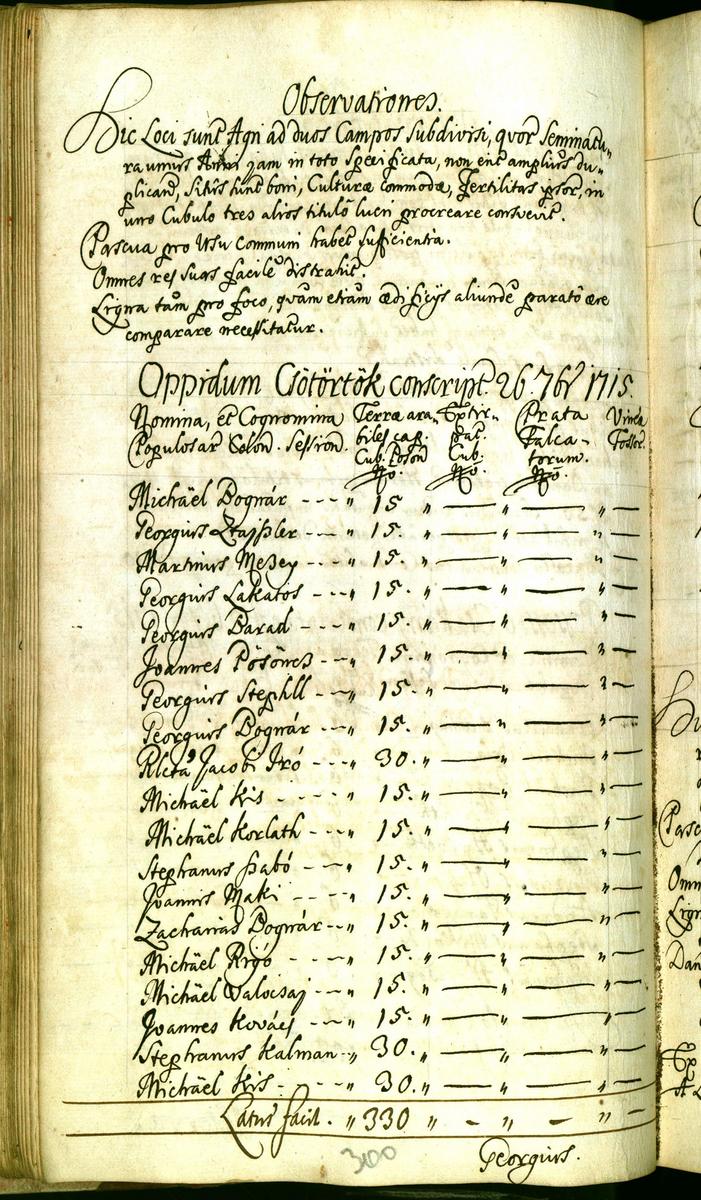 Observationes.
Hic Loci sunt Agri ad duos Campos subdivisi, quor Seminatu„
ra unius Anni jam in toto specificata, non erit amplius du„
plicand, Situs sunt boni, Culturæ commodæ, Fertilitas ipsor, in
uno Cubulo tres alios titulo lucri procreare consvevit.
Pascua pro Usu Communi habet sufficientia.
Omnes res suas facile distrahit.
Ligna tam pro foco, quam etiam ædificijs aliunde parato ære
comparare necessitatur.
Oppidum Csötörtök conscript. 26. 7br 1715.
Nomina, et Cognomina Terræ ara„ Extir„ Prata Vinea
Populosar Colon. Session. biles cap. pat. Falca- Fossor.
Cub. Poson Cub. torum.
No. No. No.
Michäel Bognár - - - „ 15 „ — „ — „ —
Georgius - - - „ 15. „ — „ — „ —
Martinus Meszey - - - „ 15. „ — „ — „ —
Georgius Lakatos - - - „ 15. „ — „ — „ —
Georgius Barad - - - „ 15. „ — „ — „ —
Joannes - - „ 15. „ — „ — „ —
Georgius Stephll - - „ 15. „ — „ — „ —
Georgius Bognár - - „ 15. „ — „ — „ —
Rlcta Jacobi Iró - - - „ 30. „ — „ — „ —
Michäel Kis - - - - „ 15. „ — „ — „ —
Michäel Korlath - - - „ 15. „ — „ — „ —
Stephanus Szabó - - - „ 15. „ — „ — „ —
Joannis Maki - - - „ 15. „ — „ — „ —
Zacharias Bognár - - „ 15. „ — „ — „ —
Michäel Rigó - - - „ 15. „ — „ — „ —
Michäel Valocsaj - - - „ 15. „ — „ — „ —
Joannes Kovács - - - „ 15. „ — „ — „ —
Stephanus Kalman - „ 30. „ — „ — „ —
Michäel Kis - - - - „ 30. „ — „ — „ —
Latus facit. „ 330 „ - „ - „ -
300
Georgius.